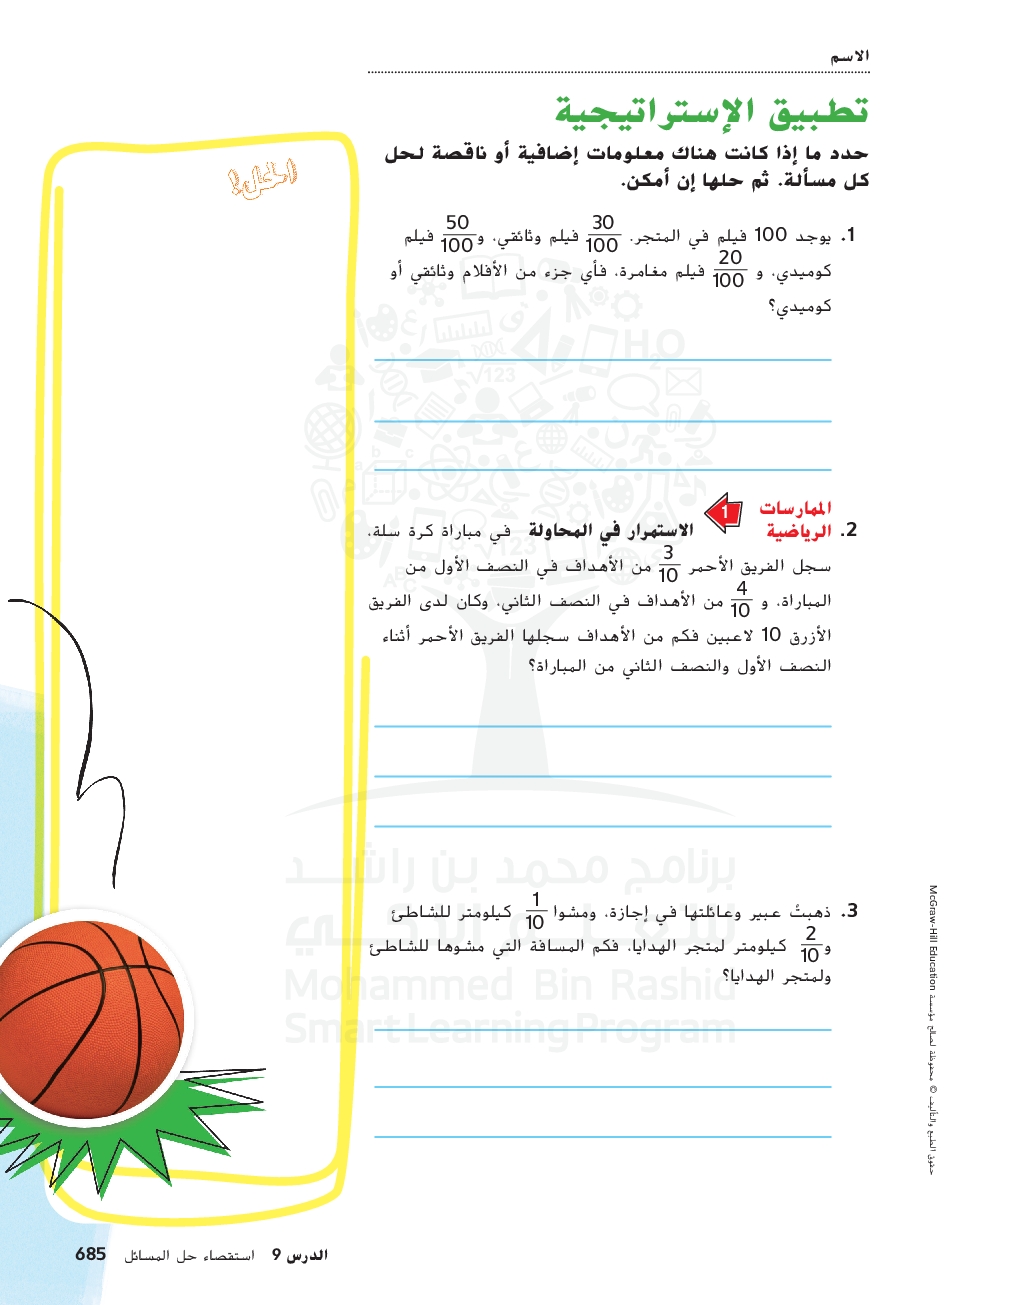 الاسم
تطبيق الإستراتيجية
حدد ما إذا كانت هناك معلومات إضافية أو ناقصة لحل
كل مسألة. ثم حلها إن أمكن.
الحل!
1. يوجد 100 فيلم في المتجر. 30/100 فيلم وثائقي، و 50/100 فيلم
كوميدي، و 20/100 فيلم مغامرة، فأي جزء من الأفلام وثائقي أو
كوميدي؟
الممارسات
2. الرياضية 1 الاستمرار في المحاولة في مباراة كرة سلة،
سجل الفريق الأحمر 3/10 من الأهداف في النصف الأول من
المباراة، و 4/10 من الأهداف في النصف الثاني، وكان لدى الفريق
الأزرق 10 لاعبين فكم من الأهداف سجلها الفريق الأحمر أثناء
النصف الأول والنصف الثاني من المباراة؟
برنامج محمد بن راشد
للتعلم الذكي
Mohammed Bin Rashid
Smart Learning Program
3. ذهبتُ عبير وعائلتها في إجازة، ومشوا 1/10 كيلومتر للشاطئ
و 2/10 كيلومتر لمتجر الهدايا، فكم المسافة التي مشوها للشاطئ
ولمتجر الهدايا؟
حقوق الطبع والتأليف © محفوظة لصالح مؤسسة McGraw-Hill Education
الدرس 9 استقصاء حل المسائل 685